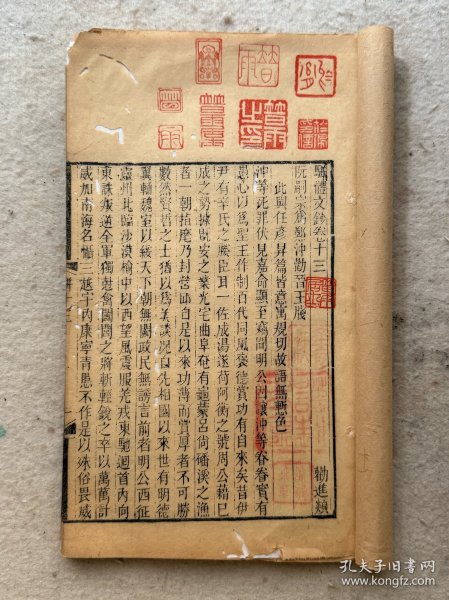 駢體文鈔卷十三
勸進類
阮嗣宗為鄭沖勸晉王牋
此與任彥昇篇皆意寓規切故語無慙色
沖等死罪伏見嘉命顯至竊聞明公固讓沖等眷眷實有
愚心以為聖王作制百代同風襃德賞功有自來矣昔伊
尹有莘氏之媵臣耳一佐成湯遂荷阿衡之號周公藉已
成之勢據旣安之業光宅曲阜奄有龜蒙呂尚磻溪之漁
者一朝指麾乃封營邱自是以來功薄而賞厚者不可勝
數然賢哲之士猶以為美談况自先相國以來世有明德
翼輔魏室以綏天下朝無闕政民無謗言前者明公西征
靈州北臨沙漠榆中以西望風震服羌戎東馳迴首內向
東誅叛逆全軍獨尅禽闔閭之將斬輕銳之卒以萬萬計
威加南海名懾三越宇內康寧苛慝不作是以殊俗畏威
孔夫子旧书网
book.kongfz.com